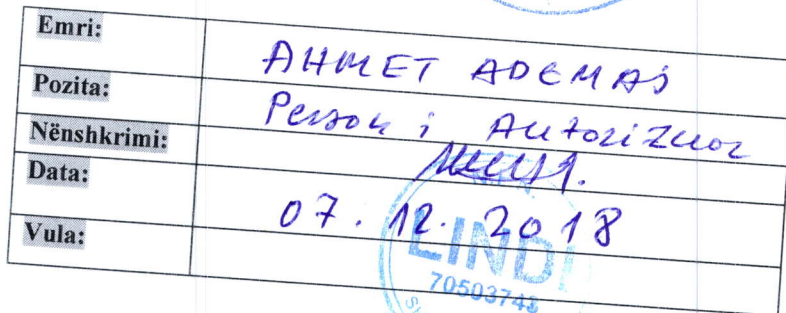 Emri: AHMET ADEMAJ
Pozita: Person i Autorizuar
Nënshkrimi:
Data: 07.12.2018
Vula:
LINDI
70503748